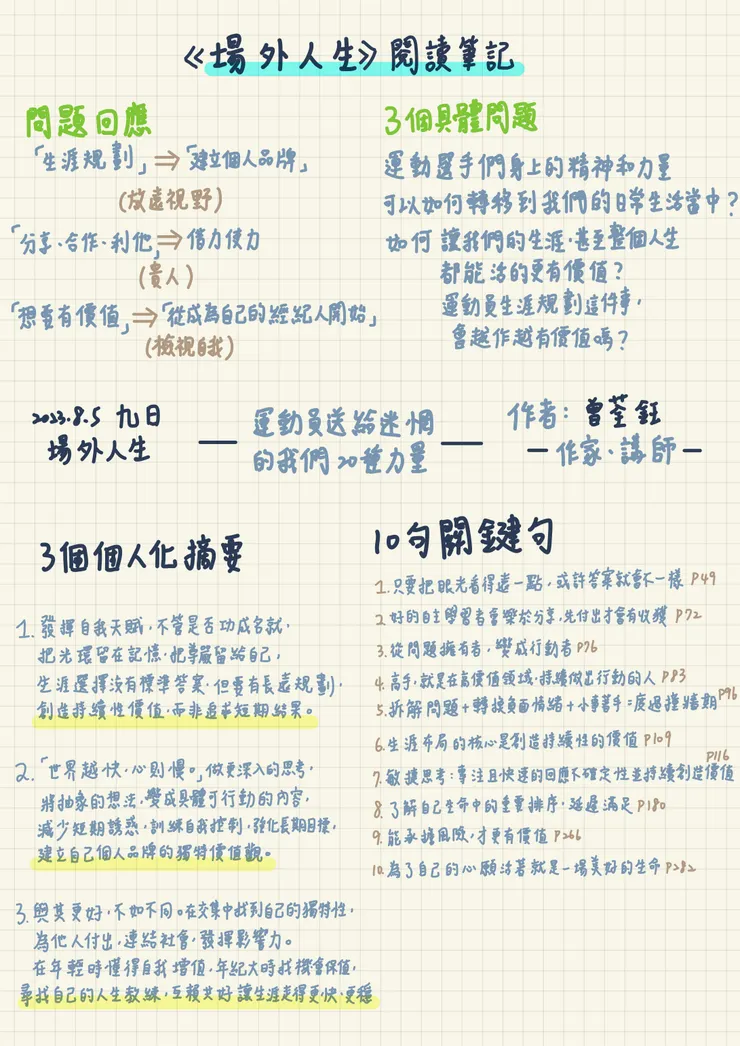 《場外人生》閱讀筆記
問題回應
「生涯規劃」⇒「建立個人品牌」
(放遠視野)
「分享、合作、利他」⇒借力使力
(貴人)
「想要有價值」⇒「從成為自己的經紀人開始」
(檢視自我)
3個具體問題
運動選手們身上的精神和力量
可以如何轉移到我們的日常生活當中?
如何讓我們的生涯,甚至整個人生
都能活的更有價值?
運動員生涯規劃這件事,
會越作越有價值嗎?
2023.8.5 九日
場外人生
運動員送給迷惘
的我們20種力量
作者:曾荃鈺
—作家、講師—
3個個人化摘要
1. 發揮自我天賦,不管是否功成名就,
把光環留在記憶,把尊嚴留給自己,
生涯選擇沒有標準答案,但要有長遠規劃,
創造持續性價值,而非追求短期結果。
2.「世界越快,心則慢。」做更深入的思考,
將抽象的想法,變成具體可行動的內容,
減少短期誘惑,訓練自我控制,強化長期目標,
建立自己個人品牌的獨特價值觀。
3. 與其更好,不如不同。在交集中找到自己的獨特性,
為他人付出,連結社會,發揮影響力。
在年輕時懂得自我增值,年紀大時找機會保值,
尋找自己的人生教練,互賴共好讓生涯走得更快、更穩
10句關鍵句
1.只要把眼光看得遠一點,或許答案就會不一樣 P49
2.好的自主學習者會樂於分享,先付出才會有收穫 P72
3.從問題擁有者,變成行動者 P76
4.高手,就是在高價值領域,持續做出行動的人 P83
5.拆解問題+轉換負面情緒+小事著手=度過撞牆期 P96
6.生涯布局的核心是創造持續性的價值 P109
7.敏捷思考:專注且快速的回應不確定性並持續創造價值 P116
8.了解自己生命中的重要排序,延遲滿足 P180
9.能承擔風險,才更有價值 P266
10.為了自己的心願活著就是一場美好的生命 P282